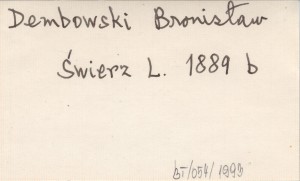 Dembowski Bronisław
Świerz L. 1889 b
BT/054/1993